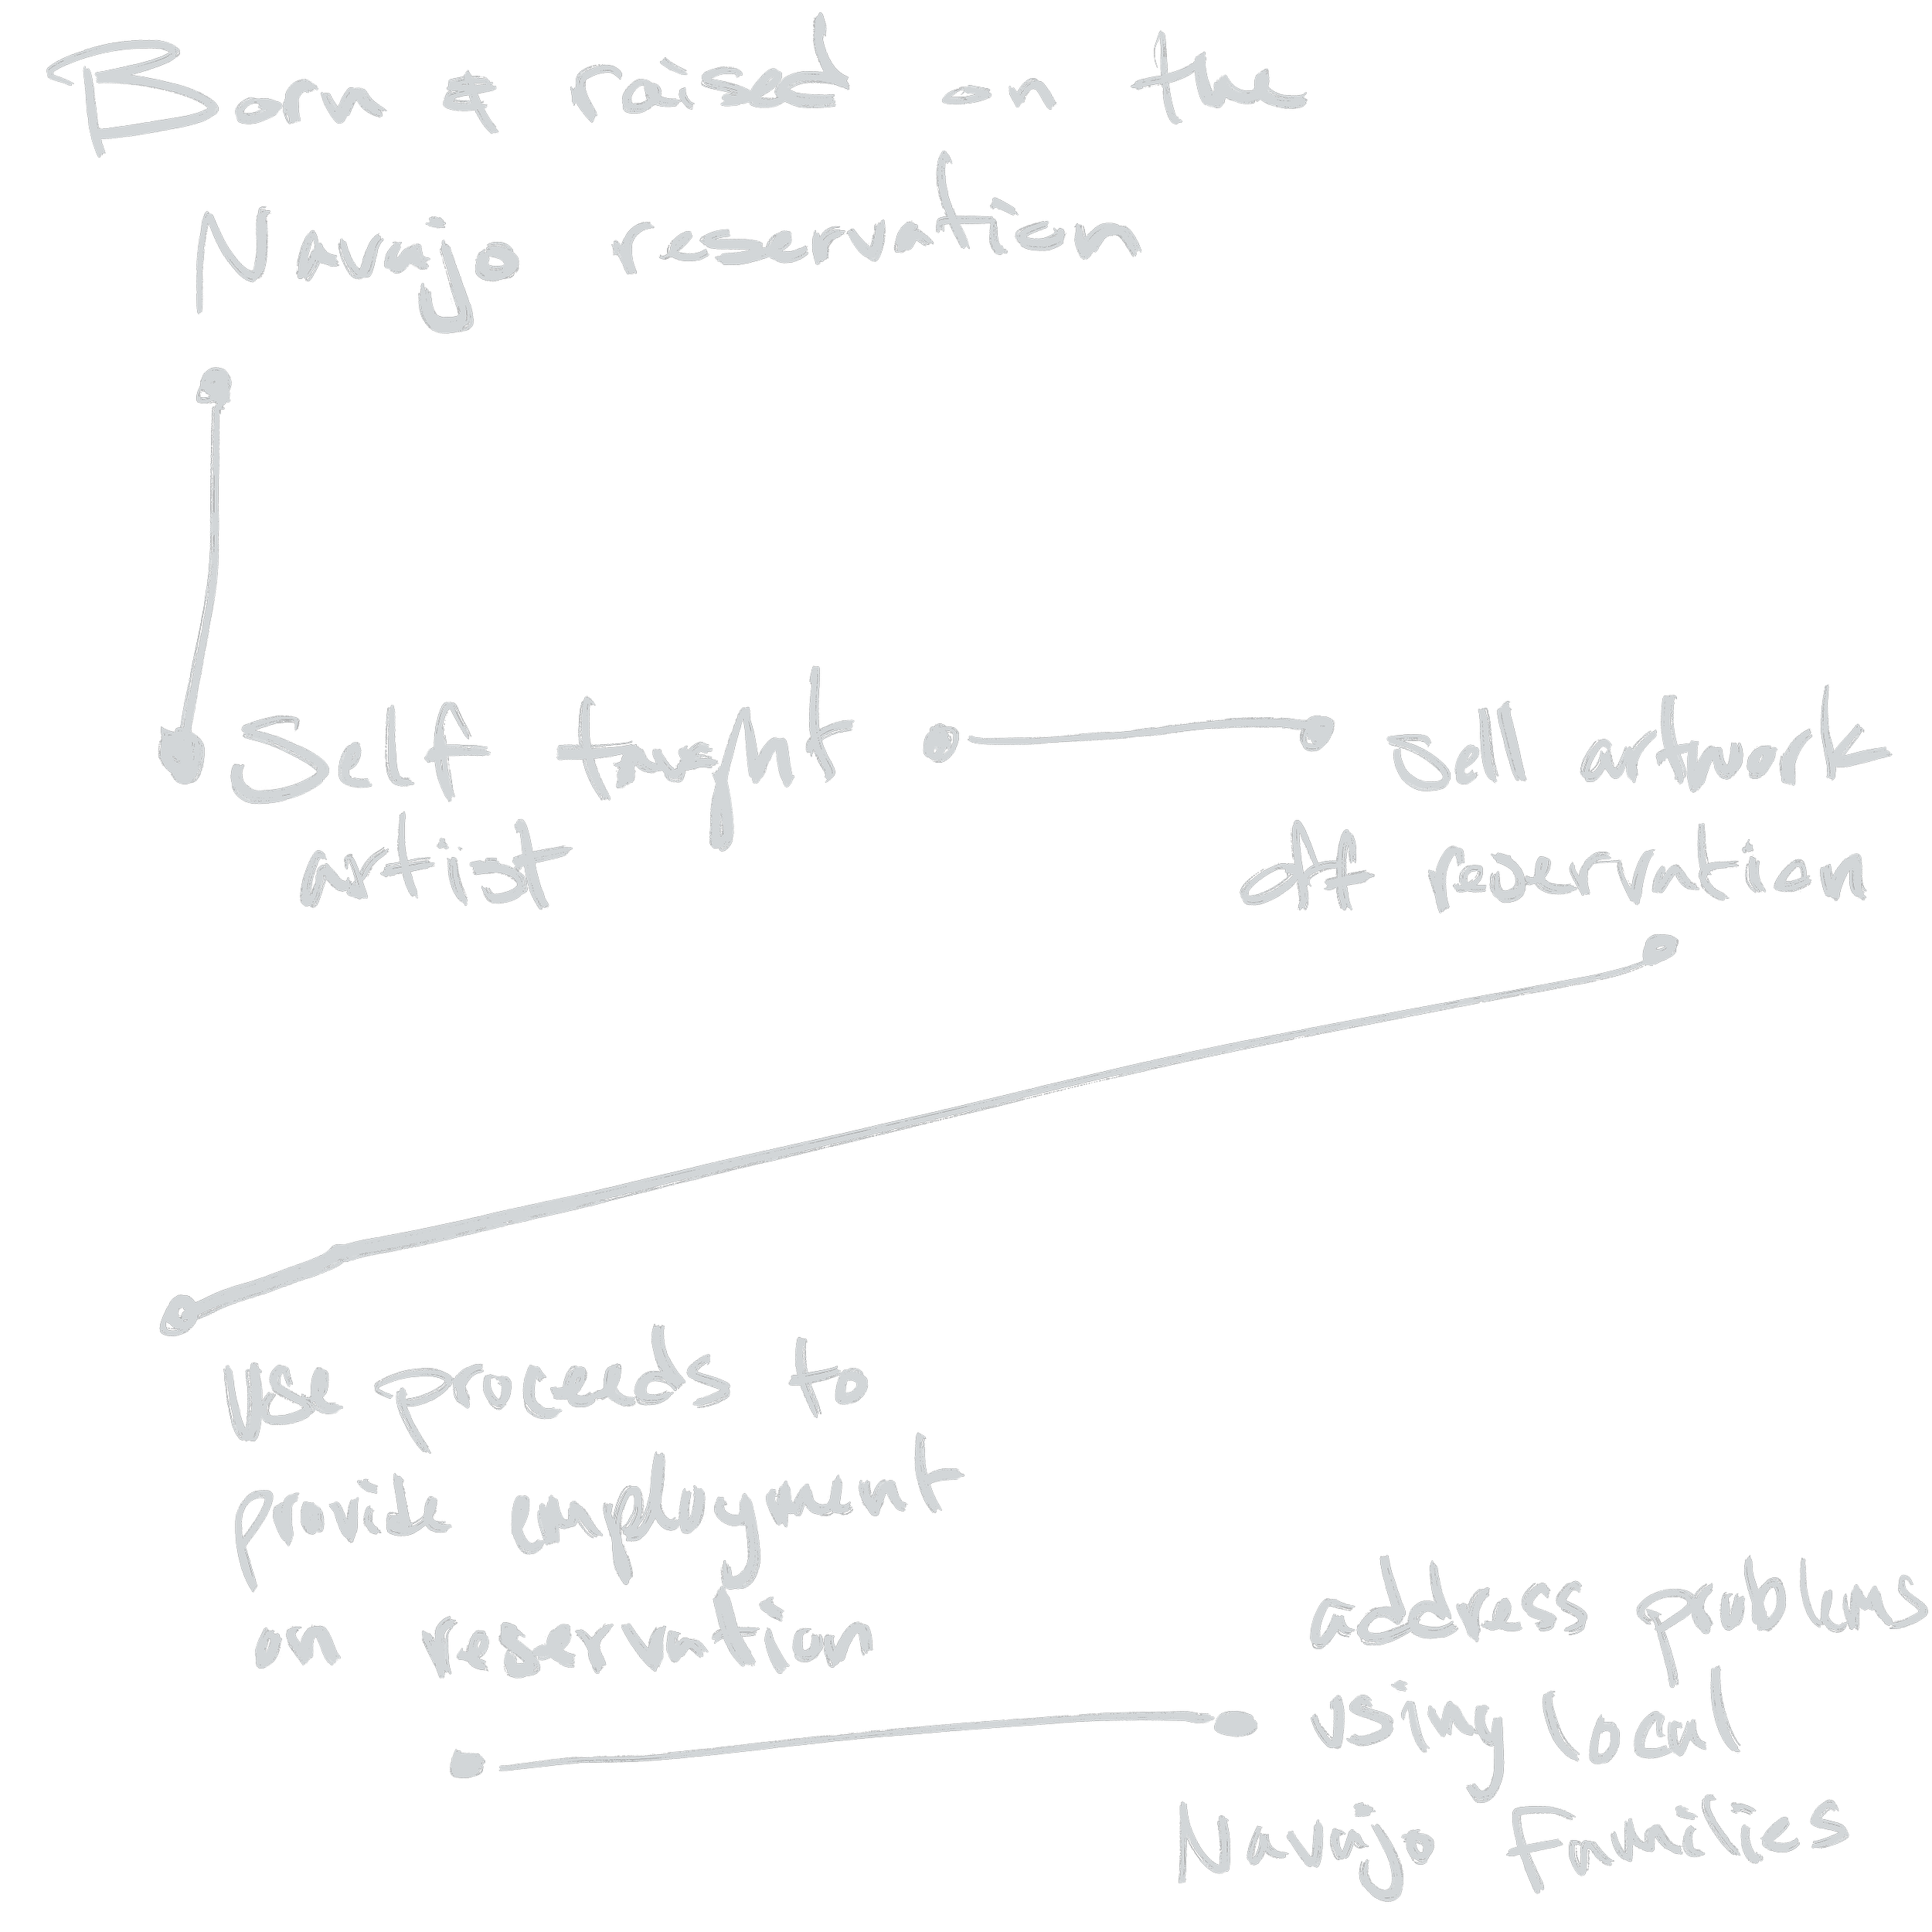 Born & raised on the
Navajo reservation
Self taught
artist
Sell artwork
off reservation
Use proceeds to
provide employment
on reservation
address problems
using local
Navajo Families